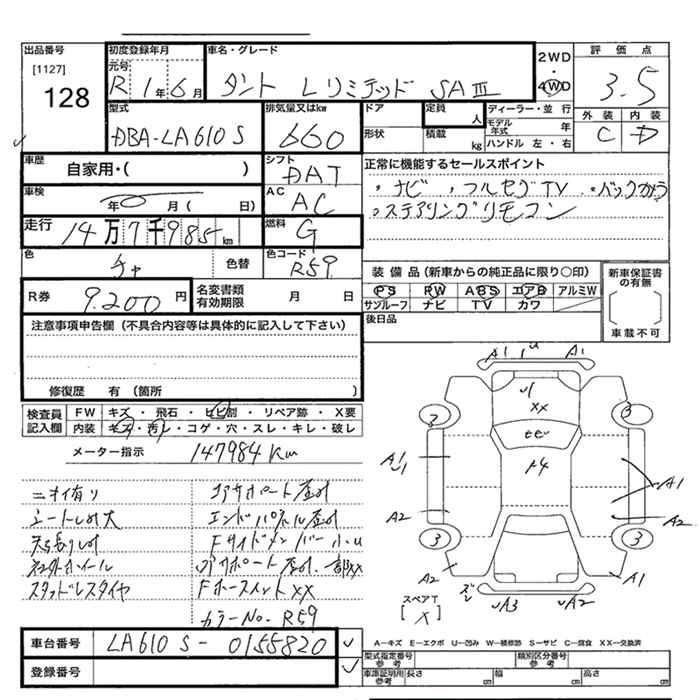 出品番号
[1127]
128
初度登録年月
元号
R 1年 6月
車名・グレード
タント LリミテッドSAⅢ
2WD
・
4WD
評価点
3.5
外装 内装
C D
型式
DBA-LA610S
排気量又はkw
660
ドア
形状
定員
人
積載
kg
ディーラー・並行
モデル年式 年
ハンドル 左・右
車歴
自家用・( )
シフト
DAT
正常に機能するセールスポイント
・ナビ ・フルセグTV ・バックカメラ
・ステアリングリモコン
車検
年 月 ( 日)
AC
AC
走行
14万7千985km
燃料
G
色
チャ
色替
色コード
R59
装備品(新車からの純正品に限り○印)
PS PW ABS エアB アルミW
サンルーフ ナビ TV カワ
新車保証書の有無
車載不可
R券
9.200円
名変書類
有効期限
月 日
後日品
注意事項申告欄(不具合内容等は具体的に記入して下さい)
修復歴 有(箇所 )
検査員
記入欄
FW キズ・飛石・ヒビ割・リペア跡・X要
内装 キズ・汚レ・コゲ・穴・スレ・キレ・破レ
メーター指示
147984Km
ニオイ有り
シートしめ大
社外ホイール
スタッドレスタイヤ
エンドパネル歪み
カラーNo. R59
A1 U A1
XX
ヒビ
3 3
A1
A1
A2
A2
3 3
A2
A1
ズレ
A3
A2
スペアT
[ X ]
車台番号
LA610S-0155820
登録番号
A-キズ E-エクボ U-凹み W-補修跡 S-サビ C-腐食 XX-交換済
型式指定番号
参考
類別区分番号
参考
車庫証明用
参考
長さ cm
幅 cm
高さ cm